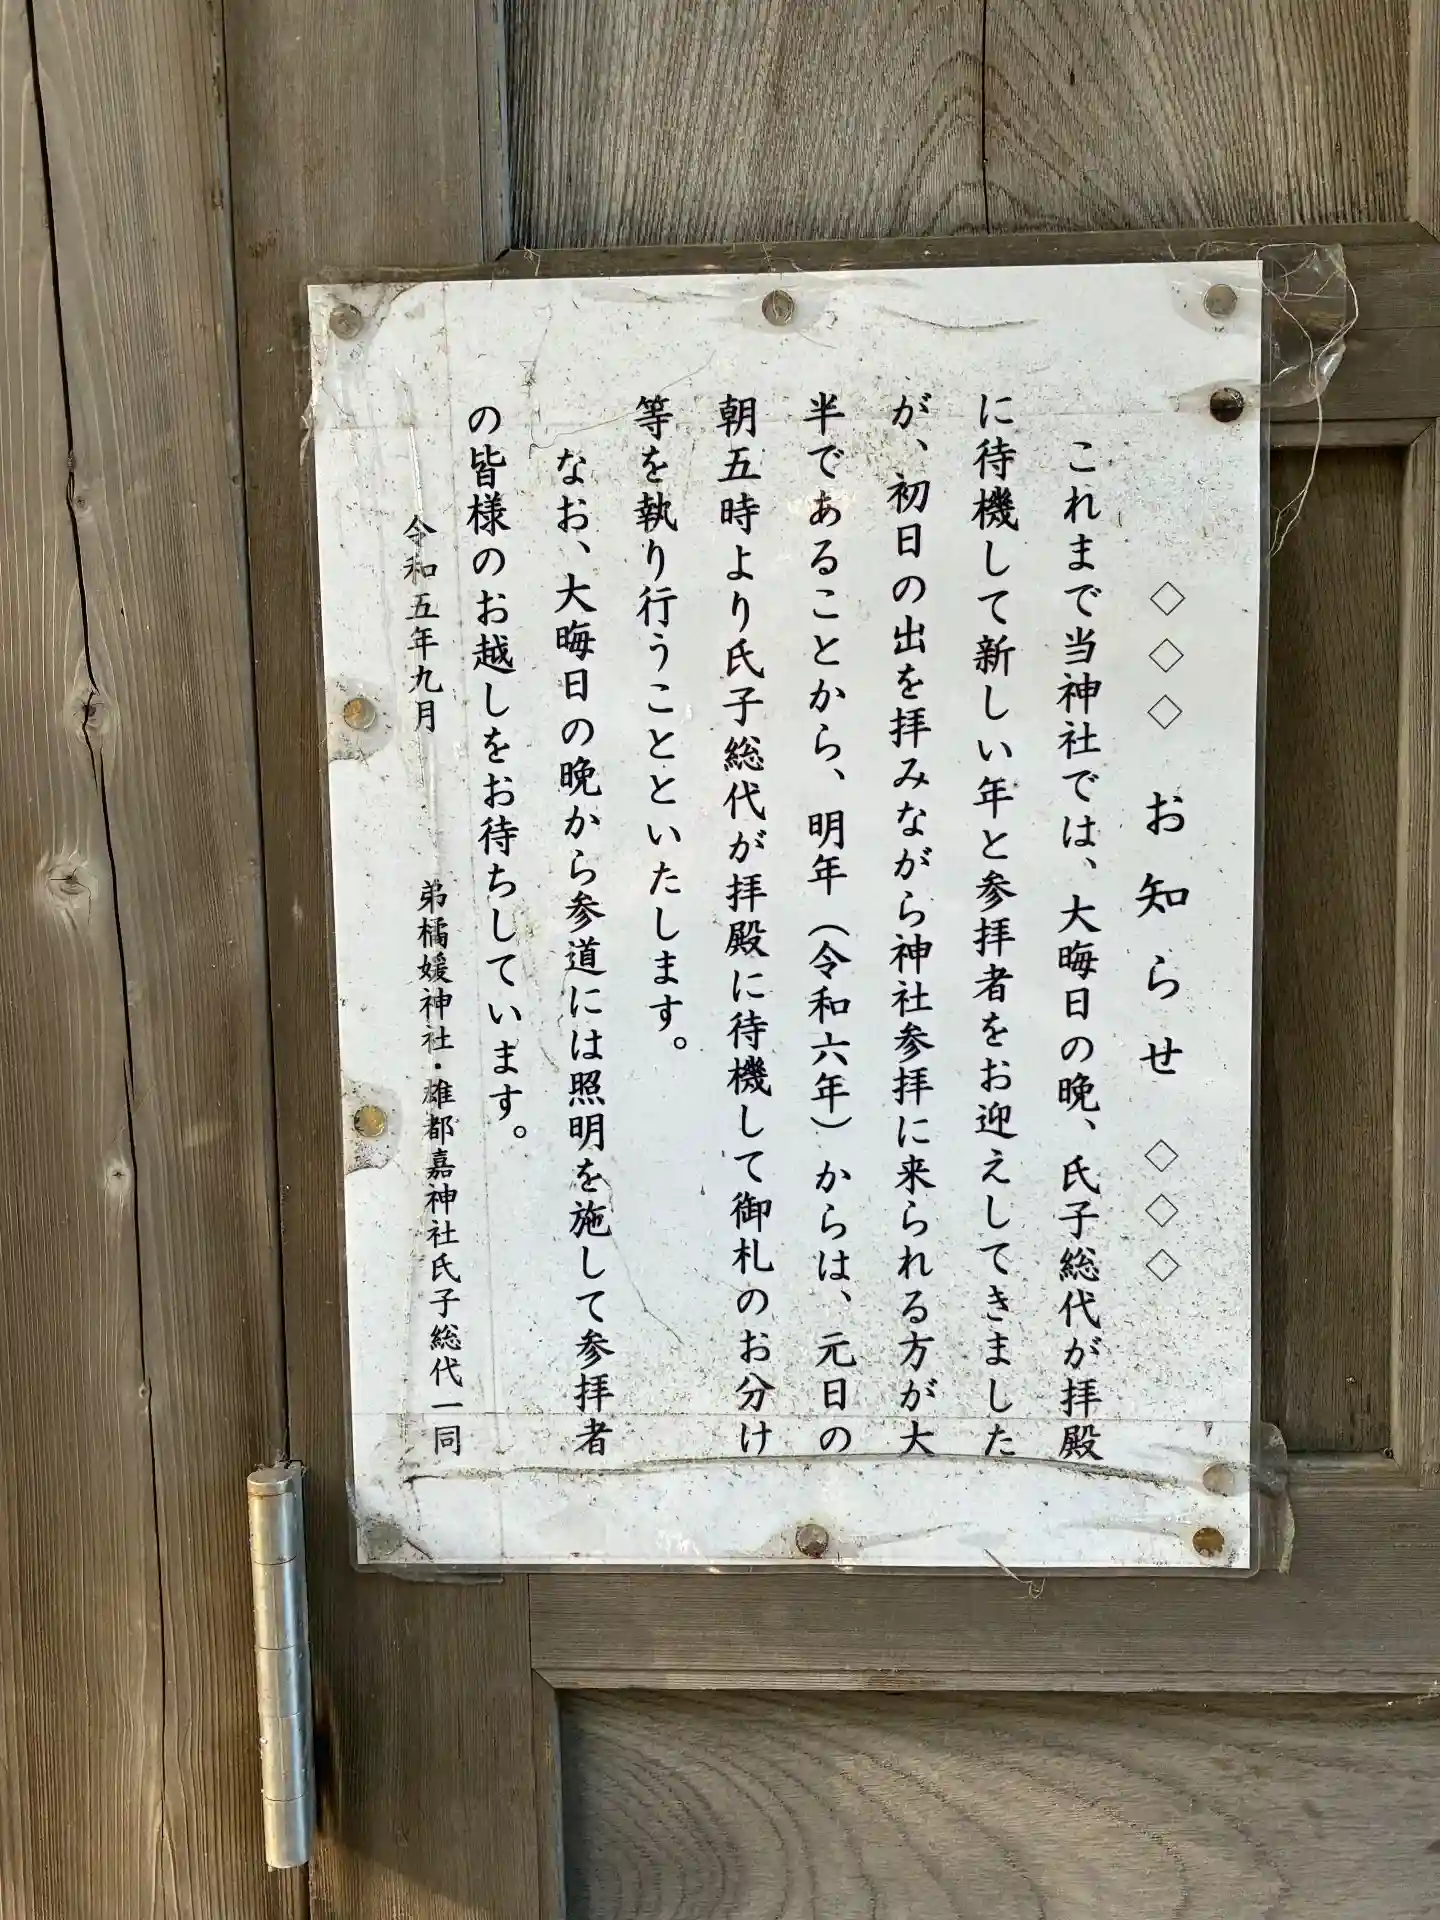 ◇◇◇ お知らせ ◇◇◇
これまで当神社では、大晦日の晩、氏子総代が拝殿
に待機して新しい年と参拝者をお迎えしてきました
が、初日の出を拝みながら神社参拝に来られる方が大
半であることから、明年(令和六年)からは、元日の
朝五時より氏子総代が拝殿に待機して御札のお分け
等を執り行うことといたします。
なお、大晦日の晩から参道には照明を施して参拝者
の皆様のお越しをお待ちしています。
令和五年九月
弟橘媛神社・雄都嘉神社氏子総代一同